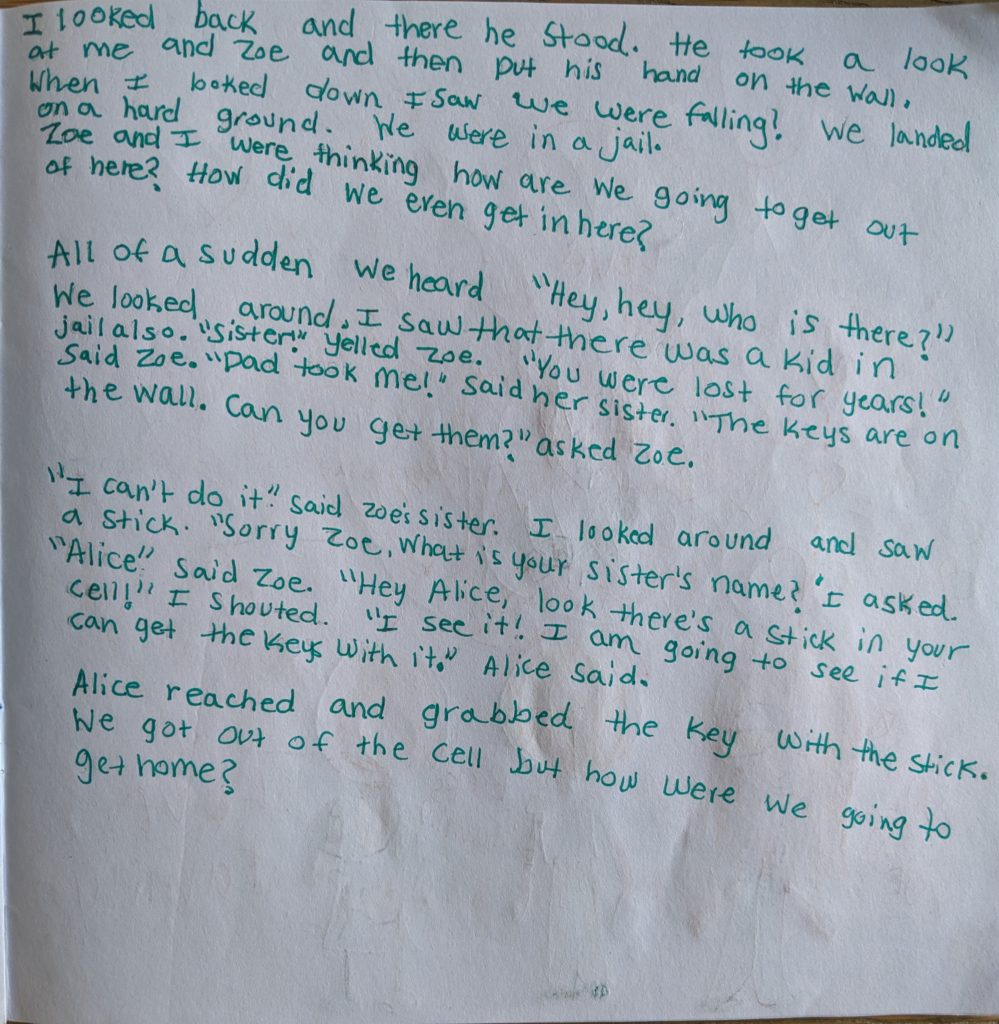 I looked back and there he stood. He took a look
at me and Zoe and then put his hand on the wall.
When I looked down I saw we were falling! We landed
on a hard ground. We were in a jail.
Zoe and I were thinking how are we going to get out
of here? How did we even get in here?
All of a sudden we heard "Hey, hey, who is there?"
We looked around. I saw that there was a kid in
jail also. "Sister!" yelled Zoe. "You were lost for years!"
said Zoe. "Dad took me!" said her sister. "The keys are on
the wall. Can you get them?" asked Zoe.
"I can't do it." said Zoe's sister. I looked around and saw
a stick. "Sorry Zoe, what is your sister's name?" I asked.
"Alice." said Zoe. "Hey Alice, look there's a stick in your
cell!" I shouted. "I see it! I am going to see if I
can get the keys with it." Alice said.
Alice reached and grabbed the key with the stick.
We got out of the cell but how were we going to
get home?